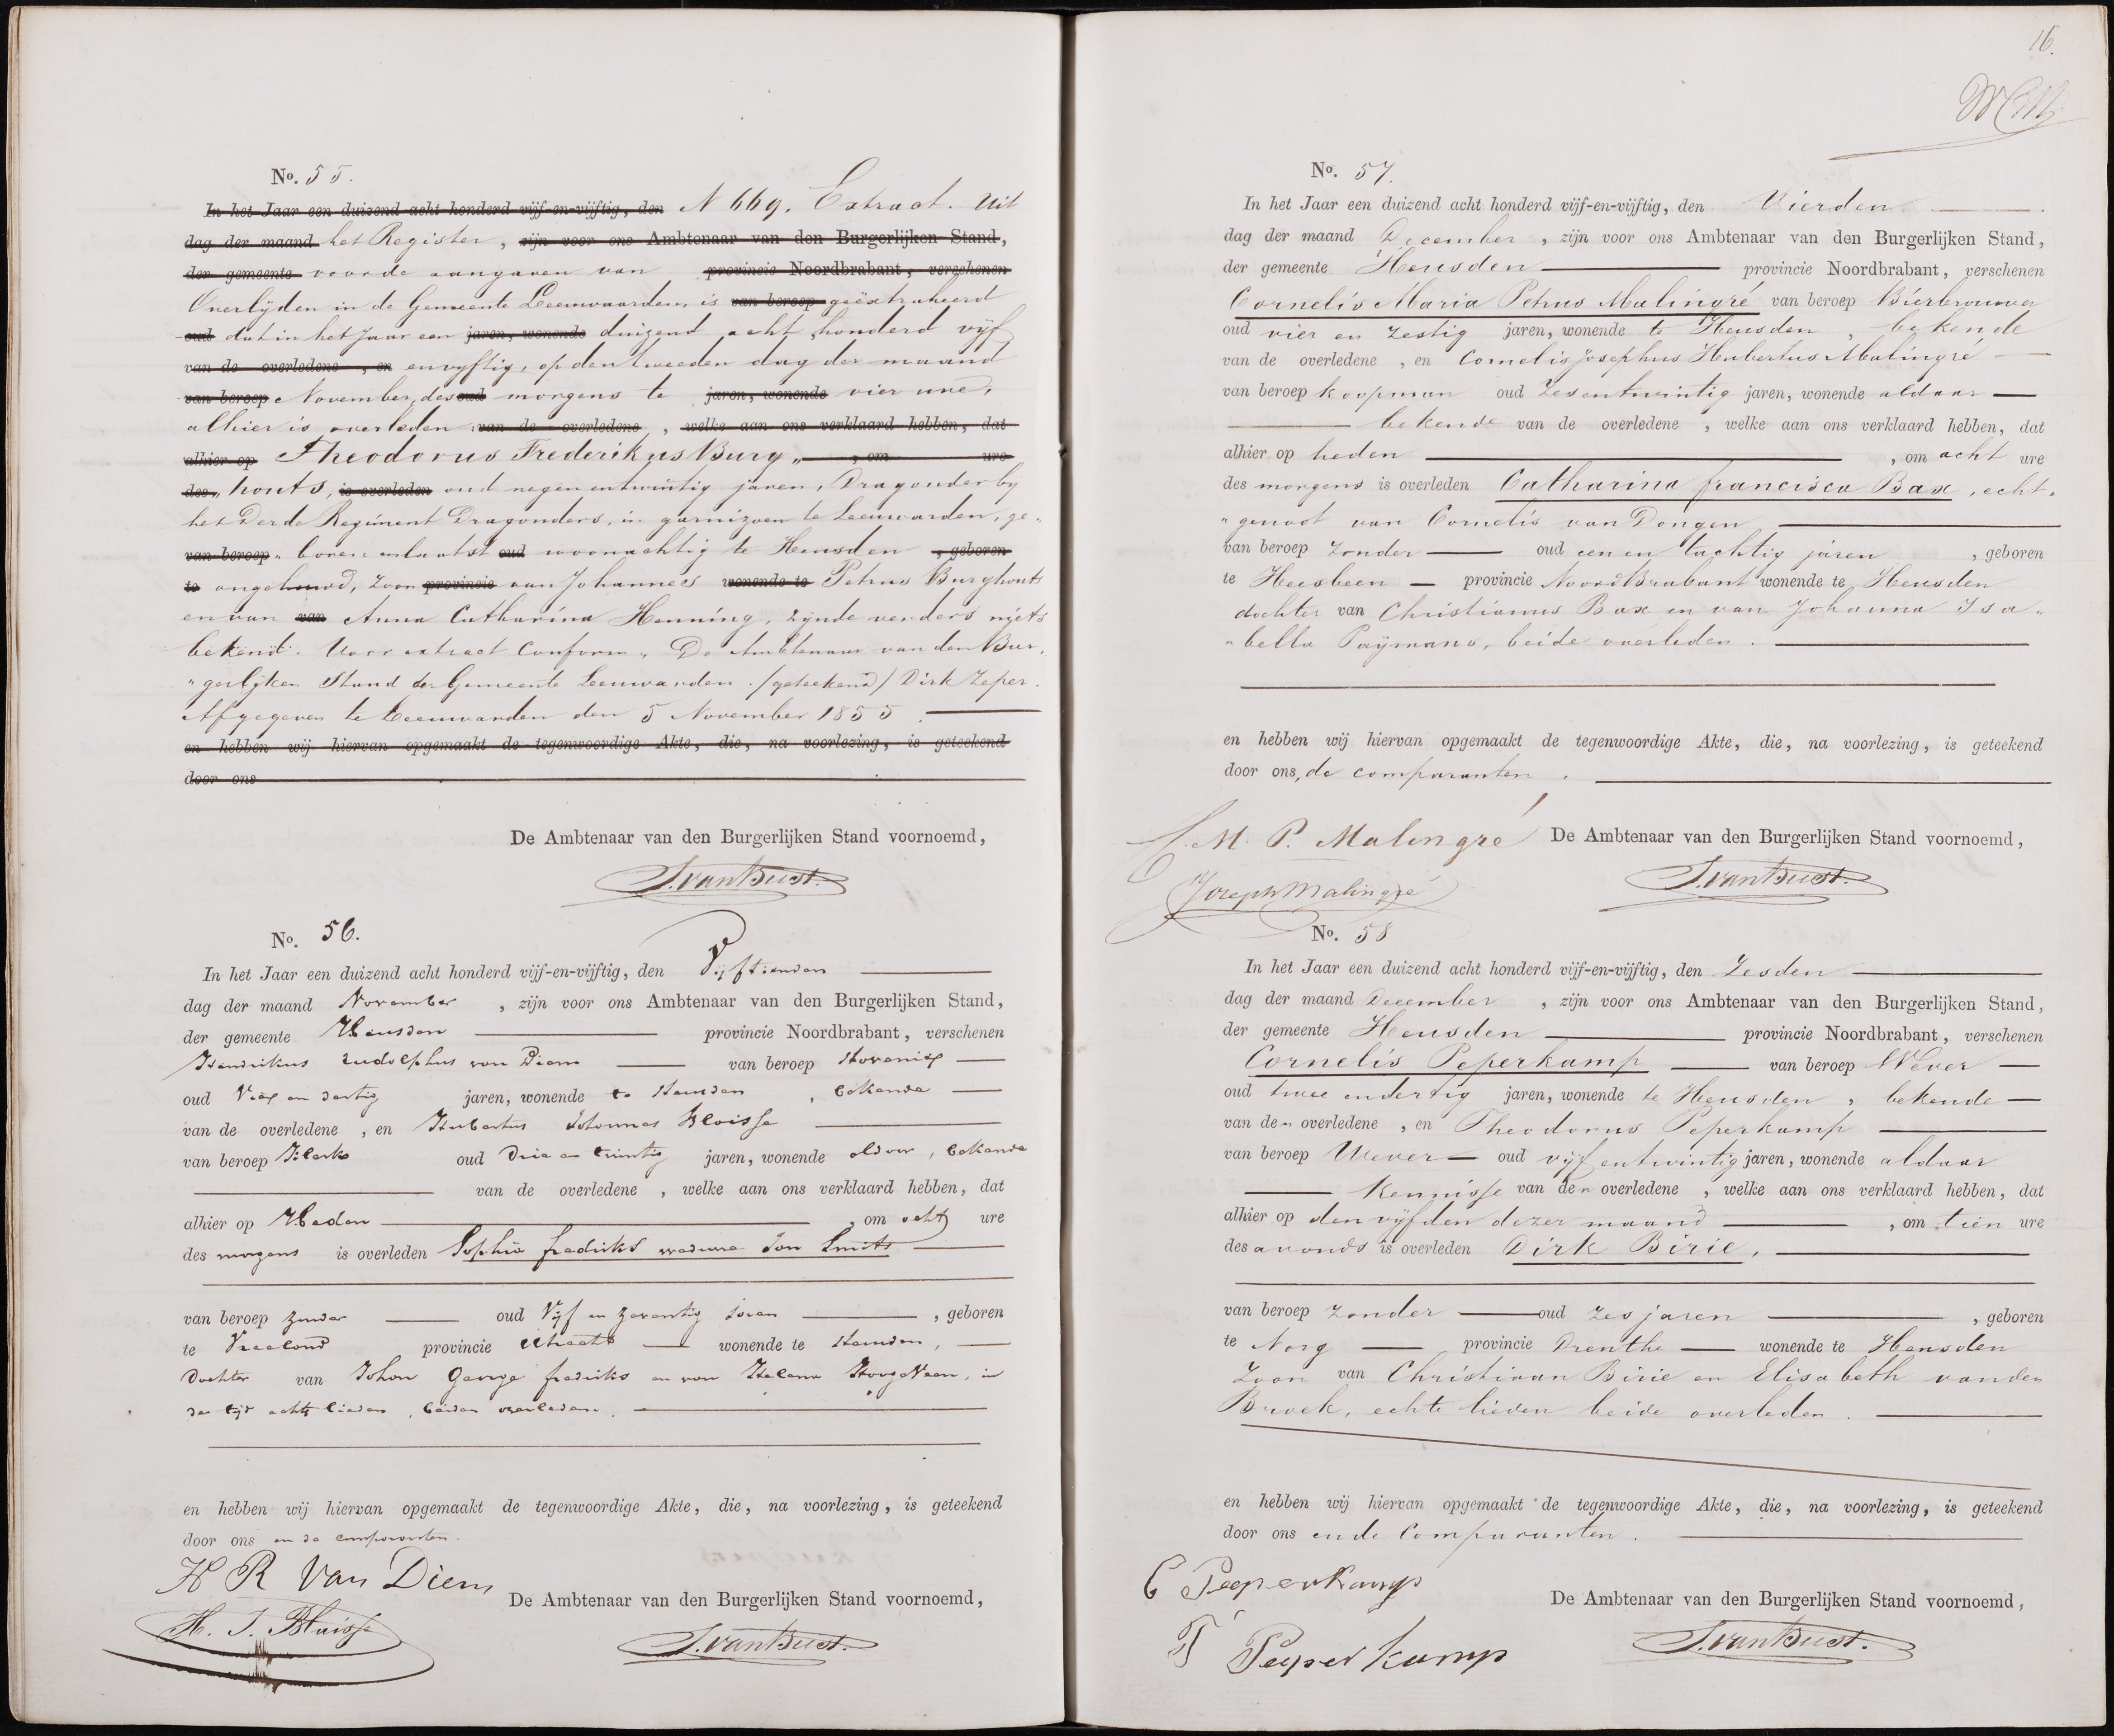 No. 55.
In het Jaar een duizend acht honderd vijf-en-vijftig, den N 669. Extract. Uit
dag der maand het Register, zijn voor ons Ambtenaar van den Burgerlijken Stand,
der gemeente voor de aangaven van provincie Noordbrabant, verschenen
Overlijden in de Gemeente Leeuwaarden, is van beroep geëxtraheerd
oud dat in het Jaar een jaren, wonende duizend acht honderd vijf
van de overledene, en en vijftig, op den tweeden dag der maand
van beroep November, des oud morgens te jaren, wonende vier ure,
alhier is overleden van de overledene, welke aan ons verklaard hebben, dat
alhier op Theodorus Frederikus Burg„ , om ure
des „houts, is overleden oud negen en twintig jaren, Dragonder by
het Derde Regiment Dragonders, in garnizoen te Leeuwarden, ge„
van beroep „boren en laatst oud woonachtig te Heusden , geboren
te ongehuwd, zoon provincie van Johannes wonende te Petrus Burghouts
en van van Anna Catharina Henning, zijnde verders niets
bekend. Voor extract Conform. De Ambtenaar van den Bur„
„gerlyken Stand der Gemeente Leeuwarden. /geteekend/ Dirk Zeper.
Afgegeven te Leeuwarden den 5 November 1855.
en hebben wij hiervan opgemaakt de tegenwoordige Akte, die, na voorlezing, is geteekend
door ons
De Ambtenaar van den Burgerlijken Stand voornoemd,
No. 56.
In het Jaar een duizend acht honderd vijf-en-vijftig, den Vijftienden
dag der maand November , zijn voor ons Ambtenaar van den Burgerlijken Stand,
der gemeente Heusden provincie Noordbrabant, verschenen
Hendrikus Rudolphus van Diem van beroep Hovenier
oud Vier en dertig jaren, wonende te Heusden , bekende
van de overledene , en Hubertus Johannes Blaisse
van beroep Klerk oud Drie en twintig jaren, wonende aldaar, bekende
van de overledene , welke aan ons verklaard hebben, dat
alhier op Heden , om acht ure
des morgens is overleden Sophia fredriks weduwe Jan Smits
van beroep zonder oud Vijf en zeventig Jaren , geboren
te Vreeland provincie Utrecht wonende te Heusden,
Dochter van Johan George fredriks en van Helena Hoogeveen, in
der tijd echte lieden, beiden overleden.
en hebben wij hiervan opgemaakt de tegenwoordige Akte, die, na voorlezing, is geteekend
door ons en de comparanten.
H R Van Diem
De Ambtenaar van den Burgerlijken Stand voornoemd,
H. J. Blaisse
16.
No. 57
In het Jaar een duizend acht honderd vijf-en-vijftig, den Vierden
dag der maand December , zijn voor ons Ambtenaar van den Burgerlijken Stand,
der gemeente Heusden provincie Noordbrabant, verschenen
Cornelis Maria Petrus Malingré van beroep Bierbrouwer
oud vier en zestig jaren, wonende te Heusden , bekende
van de overledene , en Cornelis Josephus Hubertus Malingré
van beroep koopman oud zesentwintig jaren, wonende aldaar
bekende van de overledene , welke aan ons verklaard hebben, dat
alhier op heden , om acht ure
des morgens is overleden Catharina francisca Bax, echt„
„genoot van Cornelis van Dongen
van beroep zonder oud een en tachtig jaren , geboren
te Heesbeen provincie Noord Brabant wonende te Heusden
dochter van Christianus Bax en van Johanna Isa„
„bella Paÿmans, beide overleden.
en hebben wij hiervan opgemaakt de tegenwoordige Akte, die, na voorlezing, is geteekend
door ons, de comparanten.
C. M. P. Malingré De Ambtenaar van den Burgerlijken Stand voornoemd,
Joseph Malingré
No. 58
In het Jaar een duizend acht honderd vijf-en-vijftig, den Zesden
dag der maand December , zijn voor ons Ambtenaar van den Burgerlijken Stand,
der gemeente Heusden provincie Noordbrabant, verschenen
Cornelis Peperkamp van beroep Wever
oud twee en dertig jaren, wonende te Heusden , bekende
van den overledene , en Theodorus Peperkamp
van beroep Wever oud vijf entwintig jaren, wonende aldaar
Kennisse van den overledene , welke aan ons verklaard hebben, dat
alhier op den vijfden dezer maand , om tien ure
des avonds is overleden Dirk Birie,
van beroep zonder oud zes jaren , geboren
te Norg provincie Drenthe wonende te Heusden
Zoon van Christiaan Birie en Elisabeth van den
Broek, echte lieden beide overleden.
en hebben wij hiervan opgemaakt de tegenwoordige Akte, die, na voorlezing, is geteekend
door ons en de Comparanten.
C Peeperkamp
De Ambtenaar van den Burgerlijken Stand voornoemd,
T Peeperkamp